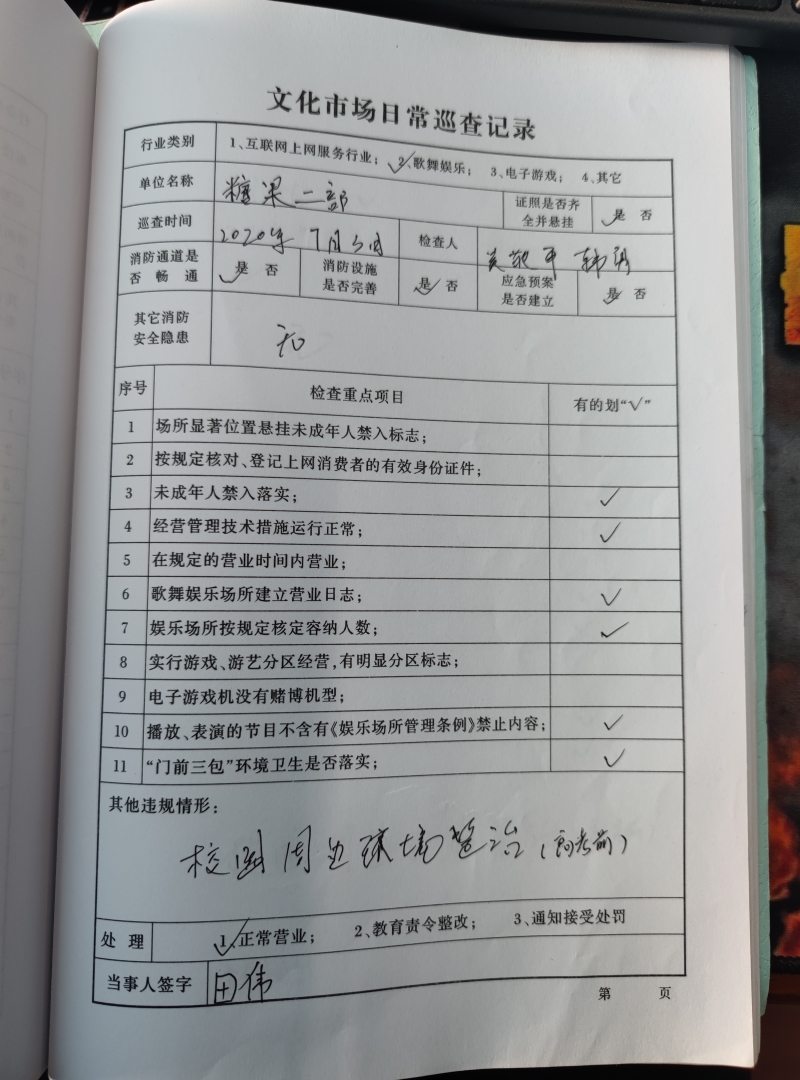 文化市场日常巡查记录
行业类别 1、互联网上网服务行业； 2、歌舞娱乐； 3、电子游戏； 4、其它
单位名称 糖果二部 证照是否齐全并悬挂 ✓是 否
巡查时间 2020年7月5日 检查人
消防通道是否畅通 ✓是 否 消防设施是否完善 ✓是 否 应急预案是否建立 ✓是 否
其它消防安全隐患 无
序号 检查重点项目 有的划“√”
1 场所显著位置悬挂未成年人禁入标志；
2 按规定核对、登记上网消费者的有效身份证件；
3 未成年人禁入落实； ✓
4 经营管理技术措施运行正常； ✓
5 在规定的营业时间内营业；
6 歌舞娱乐场所建立营业日志； ✓
7 娱乐场所按规定核定容纳人数； ✓
8 实行游戏、游艺分区经营，有明显分区标志；
9 电子游戏机没有赌博机型；
10 播放、表演的节目不含有《娱乐场所管理条例》禁止内容； ✓
11 “门前三包”环境卫生是否落实； ✓
其他违规情形：
校园周边环境整治（高考前）
处理 ✓1、正常营业； 2、教育责令整改； 3、通知接受处罚
当事人签字 田伟
第 页